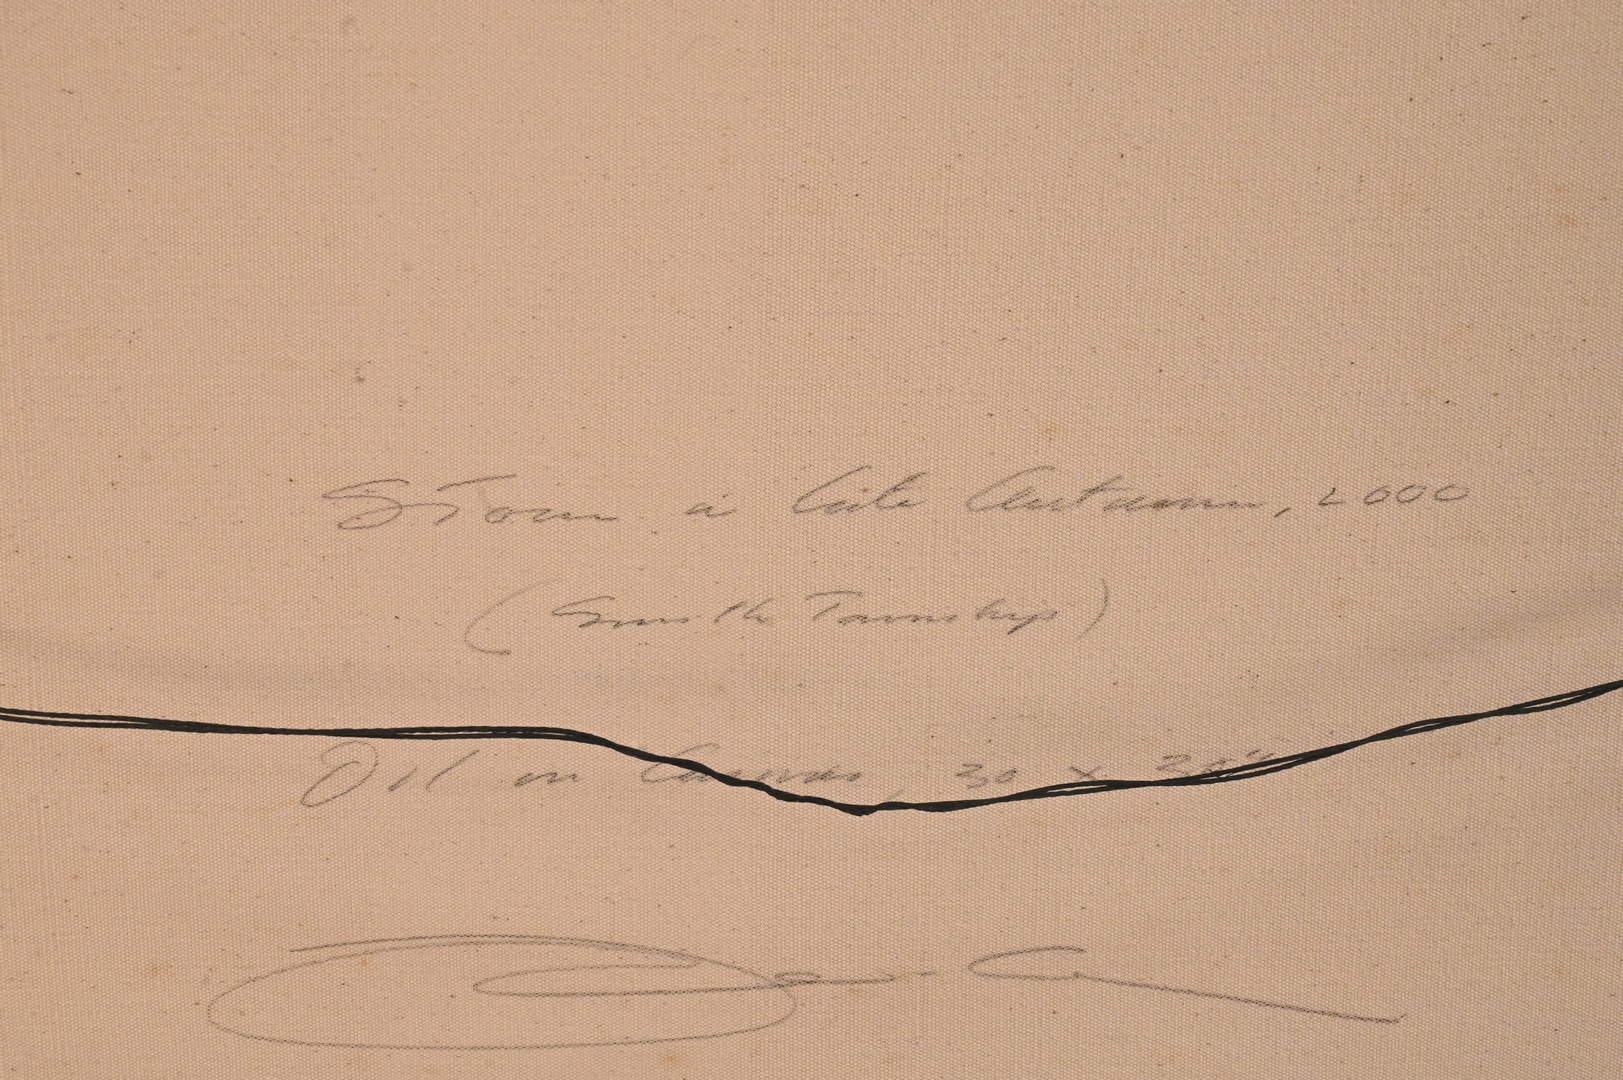 Storm in late Autumn, 2000
(Smith Township)
Oil on Canvas, 30 x 30"